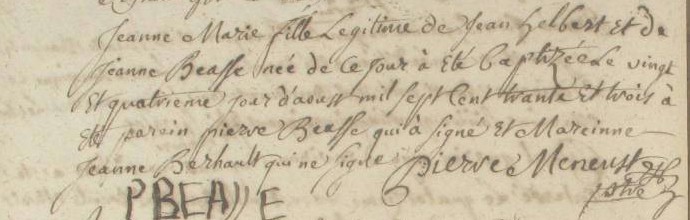 Jeanne Marie fille Legitime de Jean helbert Et de
Jeanne Beasse née de ce Jour à Eté baptizée Le vingt
Et quatrieme jour d'aoust mil sept Cent trante Et trois à
Eté parein pierre Beasse qui à signé Et Mareinne
Jeanne Berhault qui ne signe Pierre Meneust
PBEASSE ptre